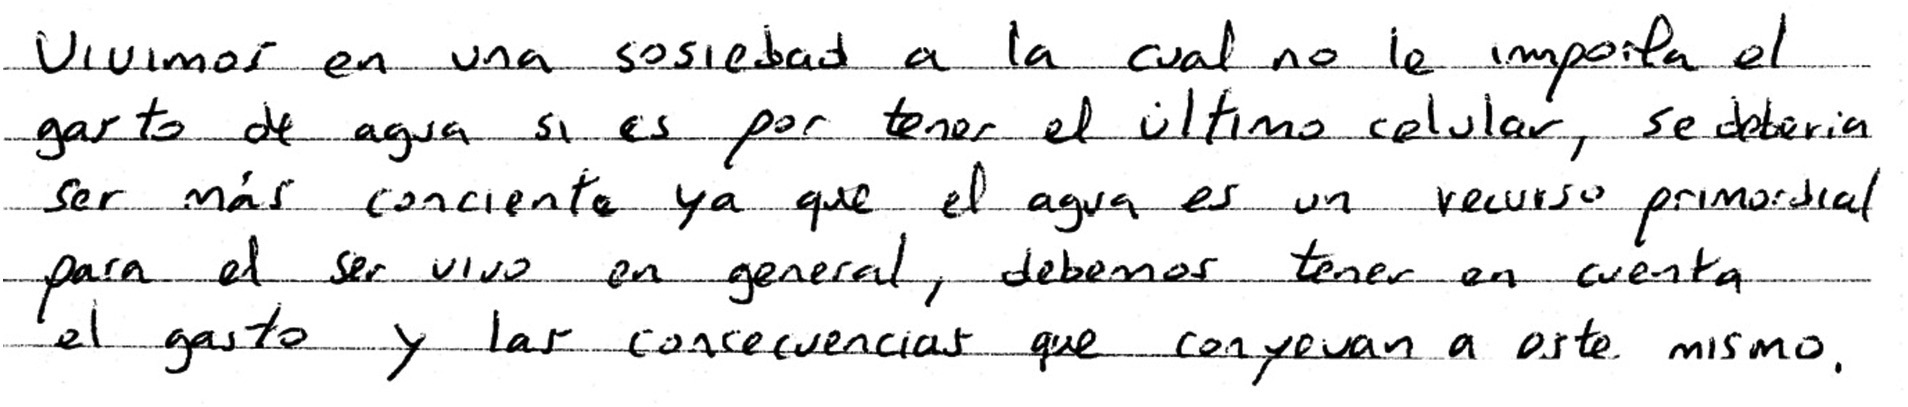 Vivimos en una sosiedad a la cual no le importa el
gasto de agua si es por tener el último celular, se deberia
ser más conciente ya que el agua es un recurso primordial
para el ser vivo en general, debemos tener en cuenta
el gasto y las concecuencias que conyevan a este mismo.